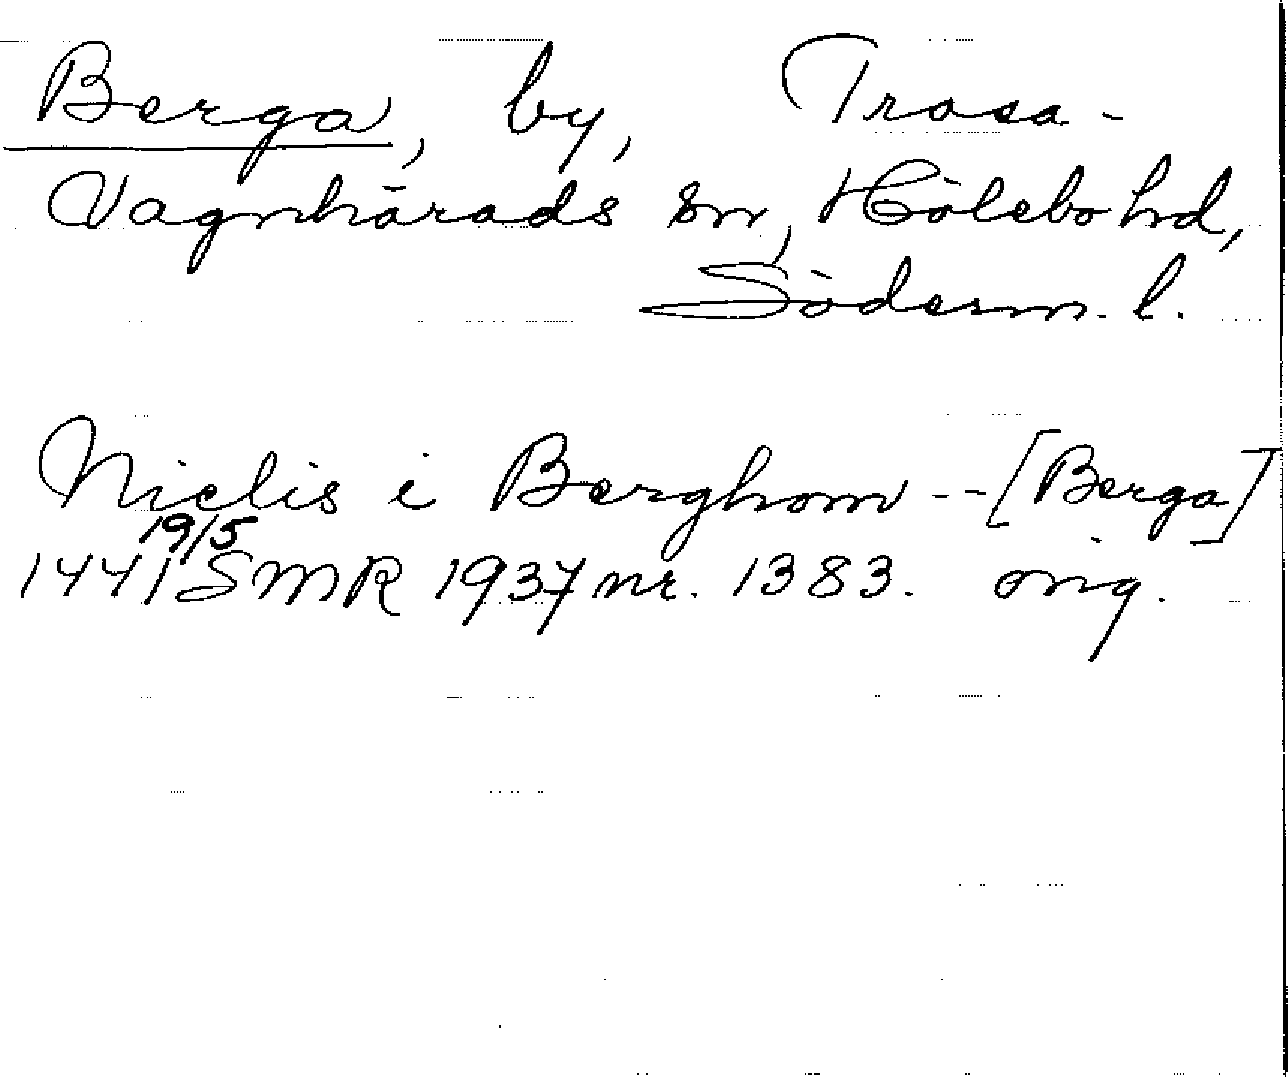 Berga, by, Trosa-
Vagnhärads sn, Hölebo hd,
Söderm. l.
Niclis i Berghom -- [Berga]
19/5
1441 SMR 1937 nr. 1383. orig.